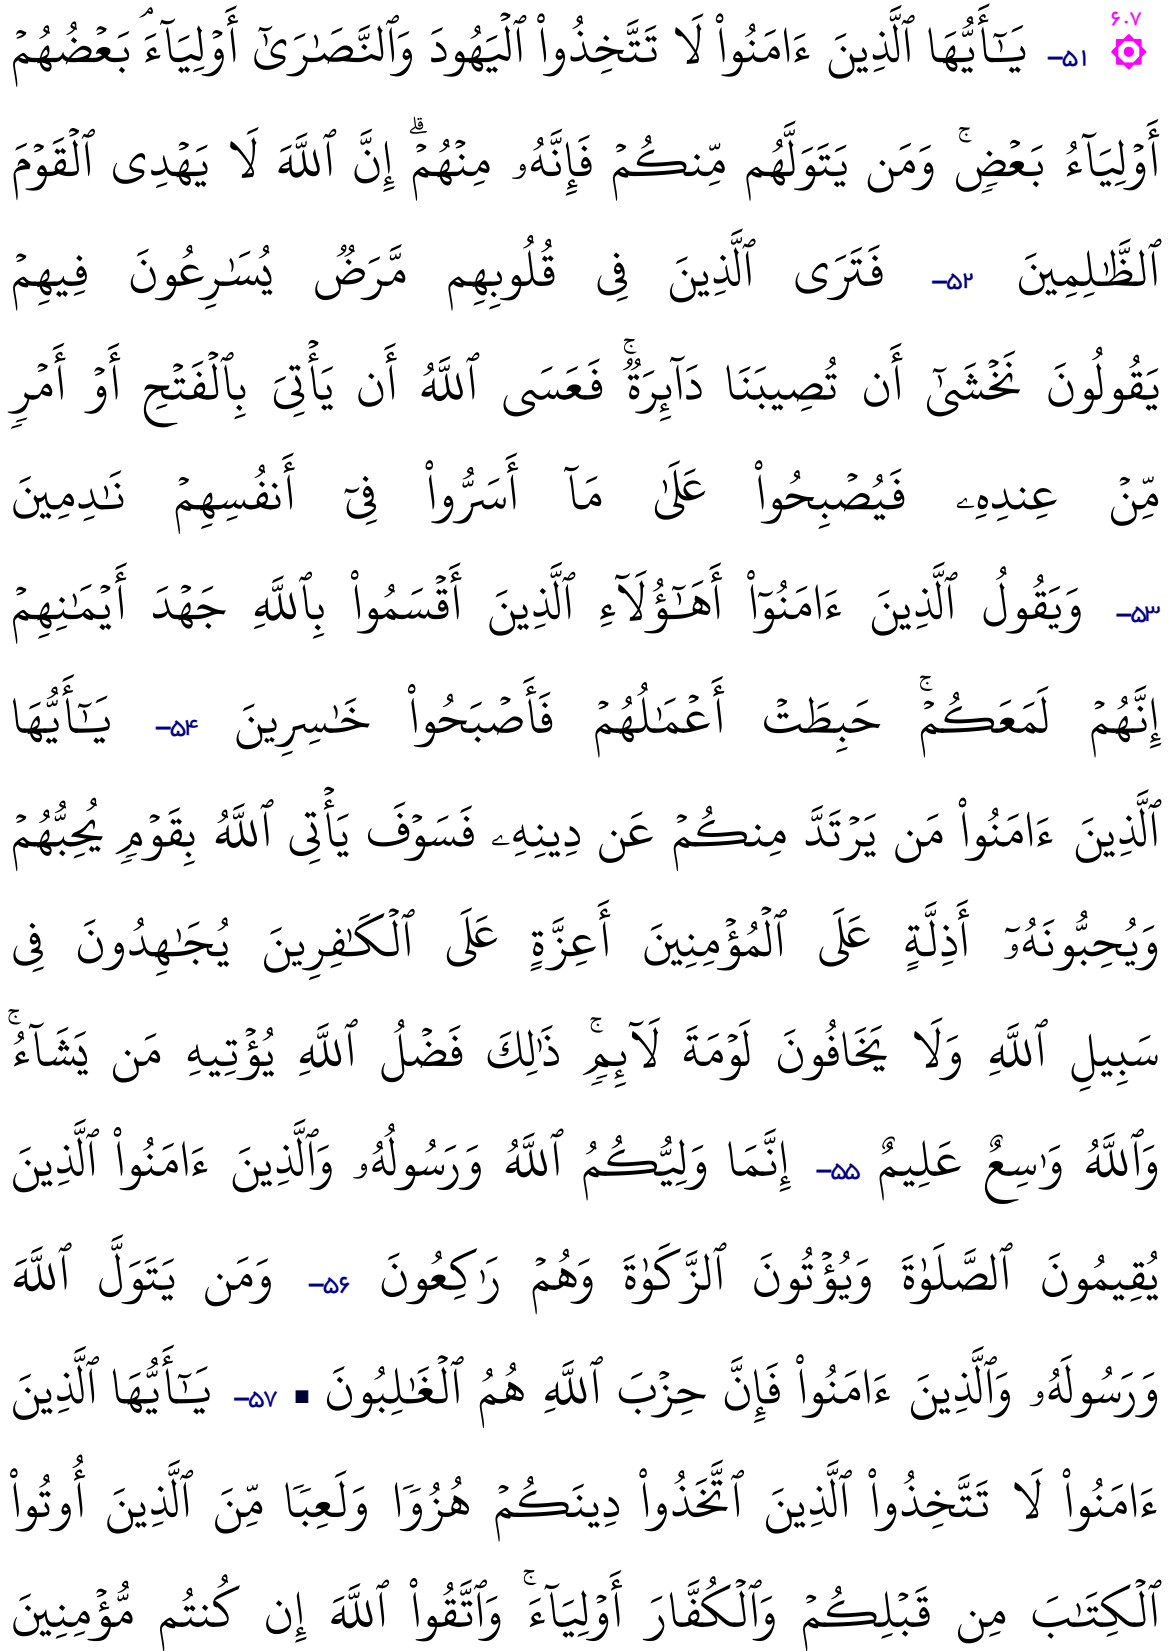 ۶۰۷
۞ ۵۱- يَـٰٓأَيُّهَا ٱلَّذِينَ ءَامَنُوا۟ لَا تَتَّخِذُوا۟ ٱلْيَهُودَ وَٱلنَّصَـٰرَىٰٓ أَوْلِيَآءَ ۘ بَعْضُهُمْ
أَوْلِيَآءُ بَعْضٍۢ ۚ وَمَن يَتَوَلَّهُم مِّنكُمْ فَإِنَّهُۥ مِنْهُمْ ۗ إِنَّ ٱللَّهَ لَا يَهْدِى ٱلْقَوْمَ
ٱلظَّـٰلِمِينَ ۵۲- فَتَرَى ٱلَّذِينَ فِى قُلُوبِهِم مَّرَضٌۭ يُسَـٰرِعُونَ فِيهِمْ
يَقُولُونَ نَخْشَىٰٓ أَن تُصِيبَنَا دَآئِرَةٌۭ ۚ فَعَسَى ٱللَّهُ أَن يَأْتِىَ بِٱلْفَتْحِ أَوْ أَمْرٍۢ
مِّنْ عِندِهِۦ فَيُصْبِحُوا۟ عَلَىٰ مَآ أَسَرُّوا۟ فِىٓ أَنفُسِهِمْ نَـٰدِمِينَ
۵۳- وَيَقُولُ ٱلَّذِينَ ءَامَنُوٓا۟ أَهَـٰٓؤُلَآءِ ٱلَّذِينَ أَقْسَمُوا۟ بِٱللَّهِ جَهْدَ أَيْمَـٰنِهِمْ
إِنَّهُمْ لَمَعَكُمْ ۚ حَبِطَتْ أَعْمَـٰلُهُمْ فَأَصْبَحُوا۟ خَـٰسِرِينَ ۵۴- يَـٰٓأَيُّهَا
ٱلَّذِينَ ءَامَنُوا۟ مَن يَرْتَدَّ مِنكُمْ عَن دِينِهِۦ فَسَوْفَ يَأْتِى ٱللَّهُ بِقَوْمٍۢ يُحِبُّهُمْ
وَيُحِبُّونَهُۥٓ أَذِلَّةٍ عَلَى ٱلْمُؤْمِنِينَ أَعِزَّةٍ عَلَى ٱلْكَـٰفِرِينَ يُجَـٰهِدُونَ فِى
سَبِيلِ ٱللَّهِ وَلَا يَخَافُونَ لَوْمَةَ لَآئِمٍۢ ۚ ذَٰلِكَ فَضْلُ ٱللَّهِ يُؤْتِيهِ مَن يَشَآءُ ۚ
وَٱللَّهُ وَٰسِعٌ عَلِيمٌ ۵۵- إِنَّمَا وَلِيُّكُمُ ٱللَّهُ وَرَسُولُهُۥ وَٱلَّذِينَ ءَامَنُوا۟ ٱلَّذِينَ
يُقِيمُونَ ٱلصَّلَوٰةَ وَيُؤْتُونَ ٱلزَّكَوٰةَ وَهُمْ رَٰكِعُونَ ۵۶- وَمَن يَتَوَلَّ ٱللَّهَ
وَرَسُولَهُۥ وَٱلَّذِينَ ءَامَنُوا۟ فَإِنَّ حِزْبَ ٱللَّهِ هُمُ ٱلْغَـٰلِبُونَ ▪ ۵۷- يَـٰٓأَيُّهَا ٱلَّذِينَ
ءَامَنُوا۟ لَا تَتَّخِذُوا۟ ٱلَّذِينَ ٱتَّخَذُوا۟ دِينَكُمْ هُزُوًۭا وَلَعِبًۭا مِّنَ ٱلَّذِينَ أُوتُوا۟
ٱلْكِتَـٰبَ مِن قَبْلِكُمْ وَٱلْكُفَّارَ أَوْلِيَآءَ ۚ وَٱتَّقُوا۟ ٱللَّهَ إِن كُنتُم مُّؤْمِنِينَ